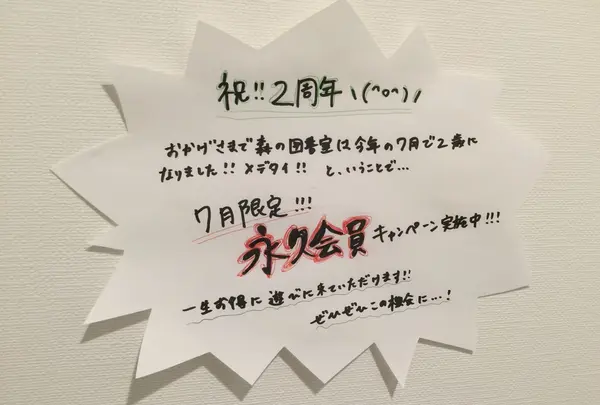 祝!! 2周年 \(^o^)/
おかげさまで森の図書室は今年の7月で2歳に
なりました!! メデタイ!! と、いうことで...
7月限定!!!
永久会員キャンペーン実施中!!!
一生お得に遊びに来ていただけます!!
ぜひぜひこの機会に...!